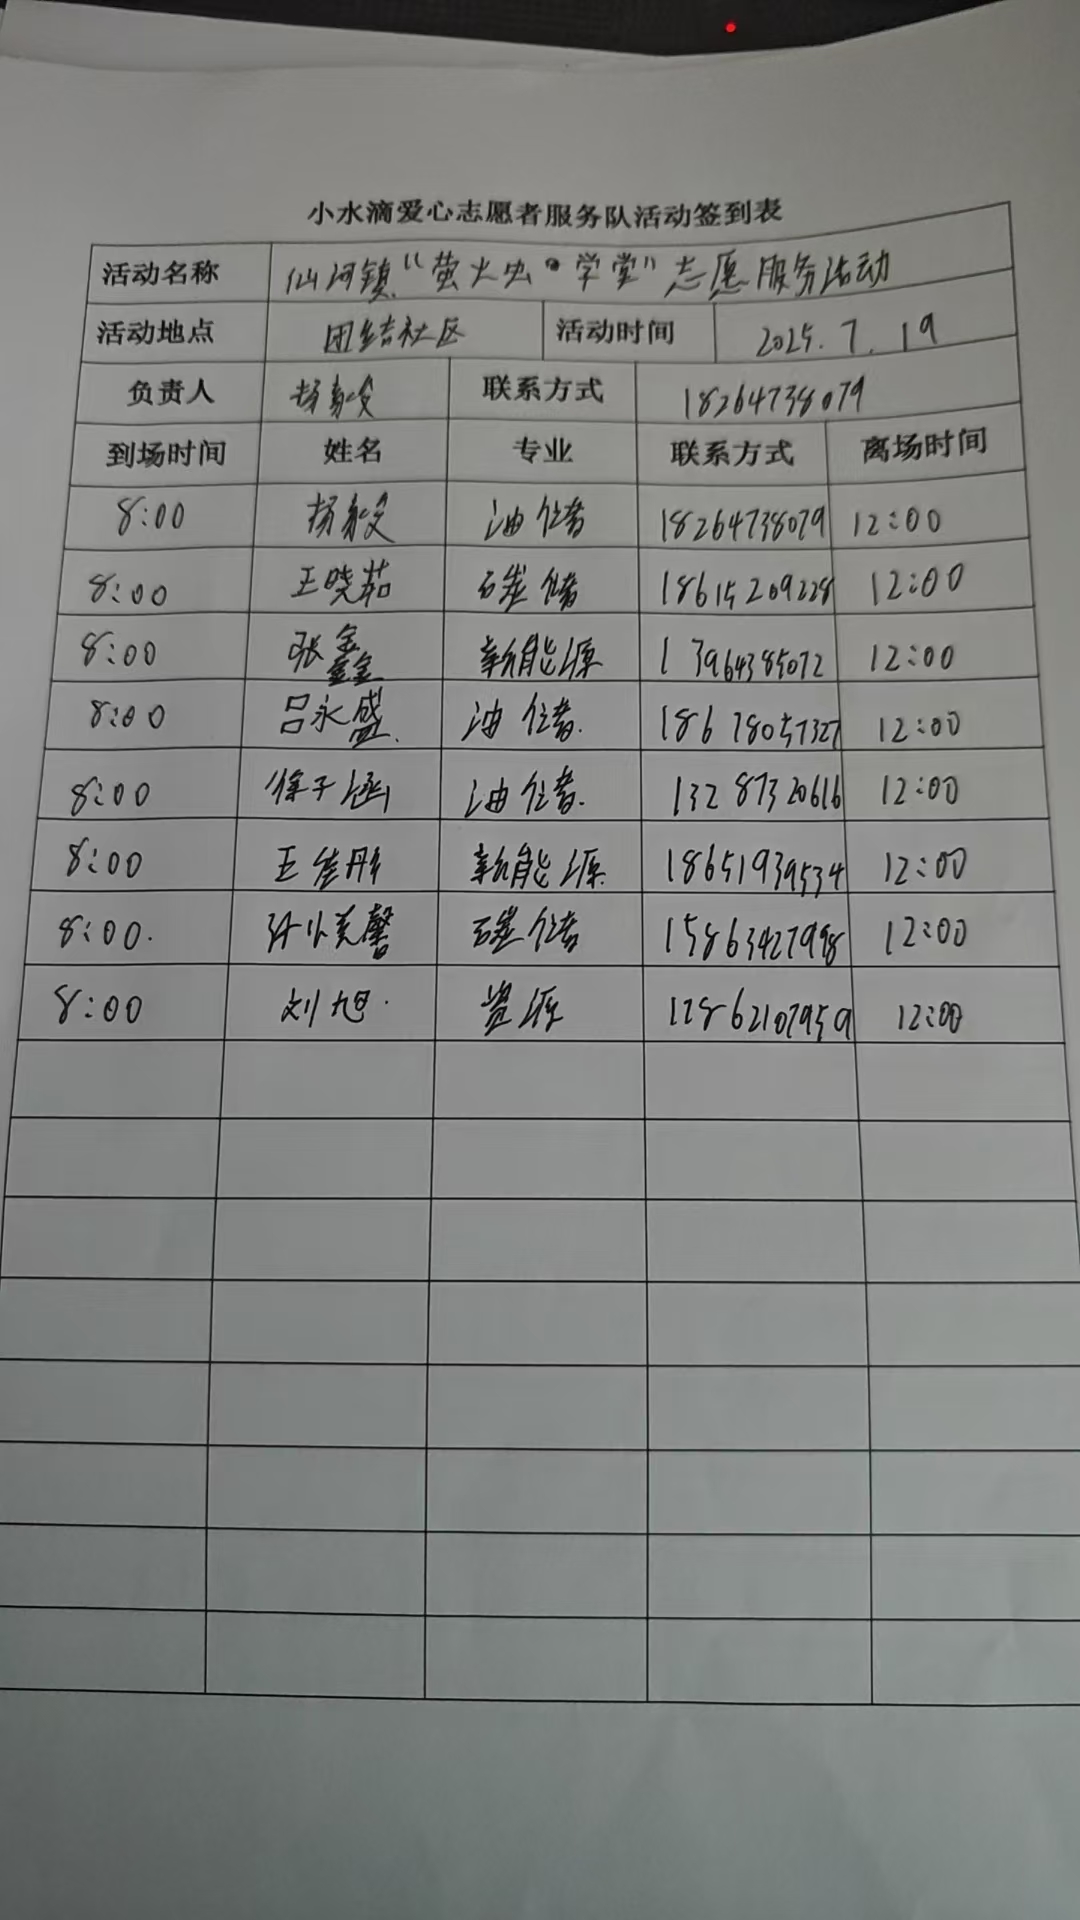 小水滴爱心志愿者服务队活动签到表
活动名称 仙河镇“萤火虫·学堂”志愿服务活动
活动地点 团结社区 活动时间 2025.7.19
负责人 联系方式 18264738079
到场时间 姓名 专业 联系方式 离场时间
8:00 油储 18264738079 12:00
8:00 王晓茹 碳储 18615209228 12:00
8:00 张鑫鑫 新能源 13964385072 12:00
8:00 吕永盛 油储 18678057327 12:00
8:00 徐子涵 油储 13287320616 12:00
8:00 王佳彤 新能源 18651939534 12:00
8:00. 碳储 15863427998 12:00
8:00 刘旭 资源 12:00